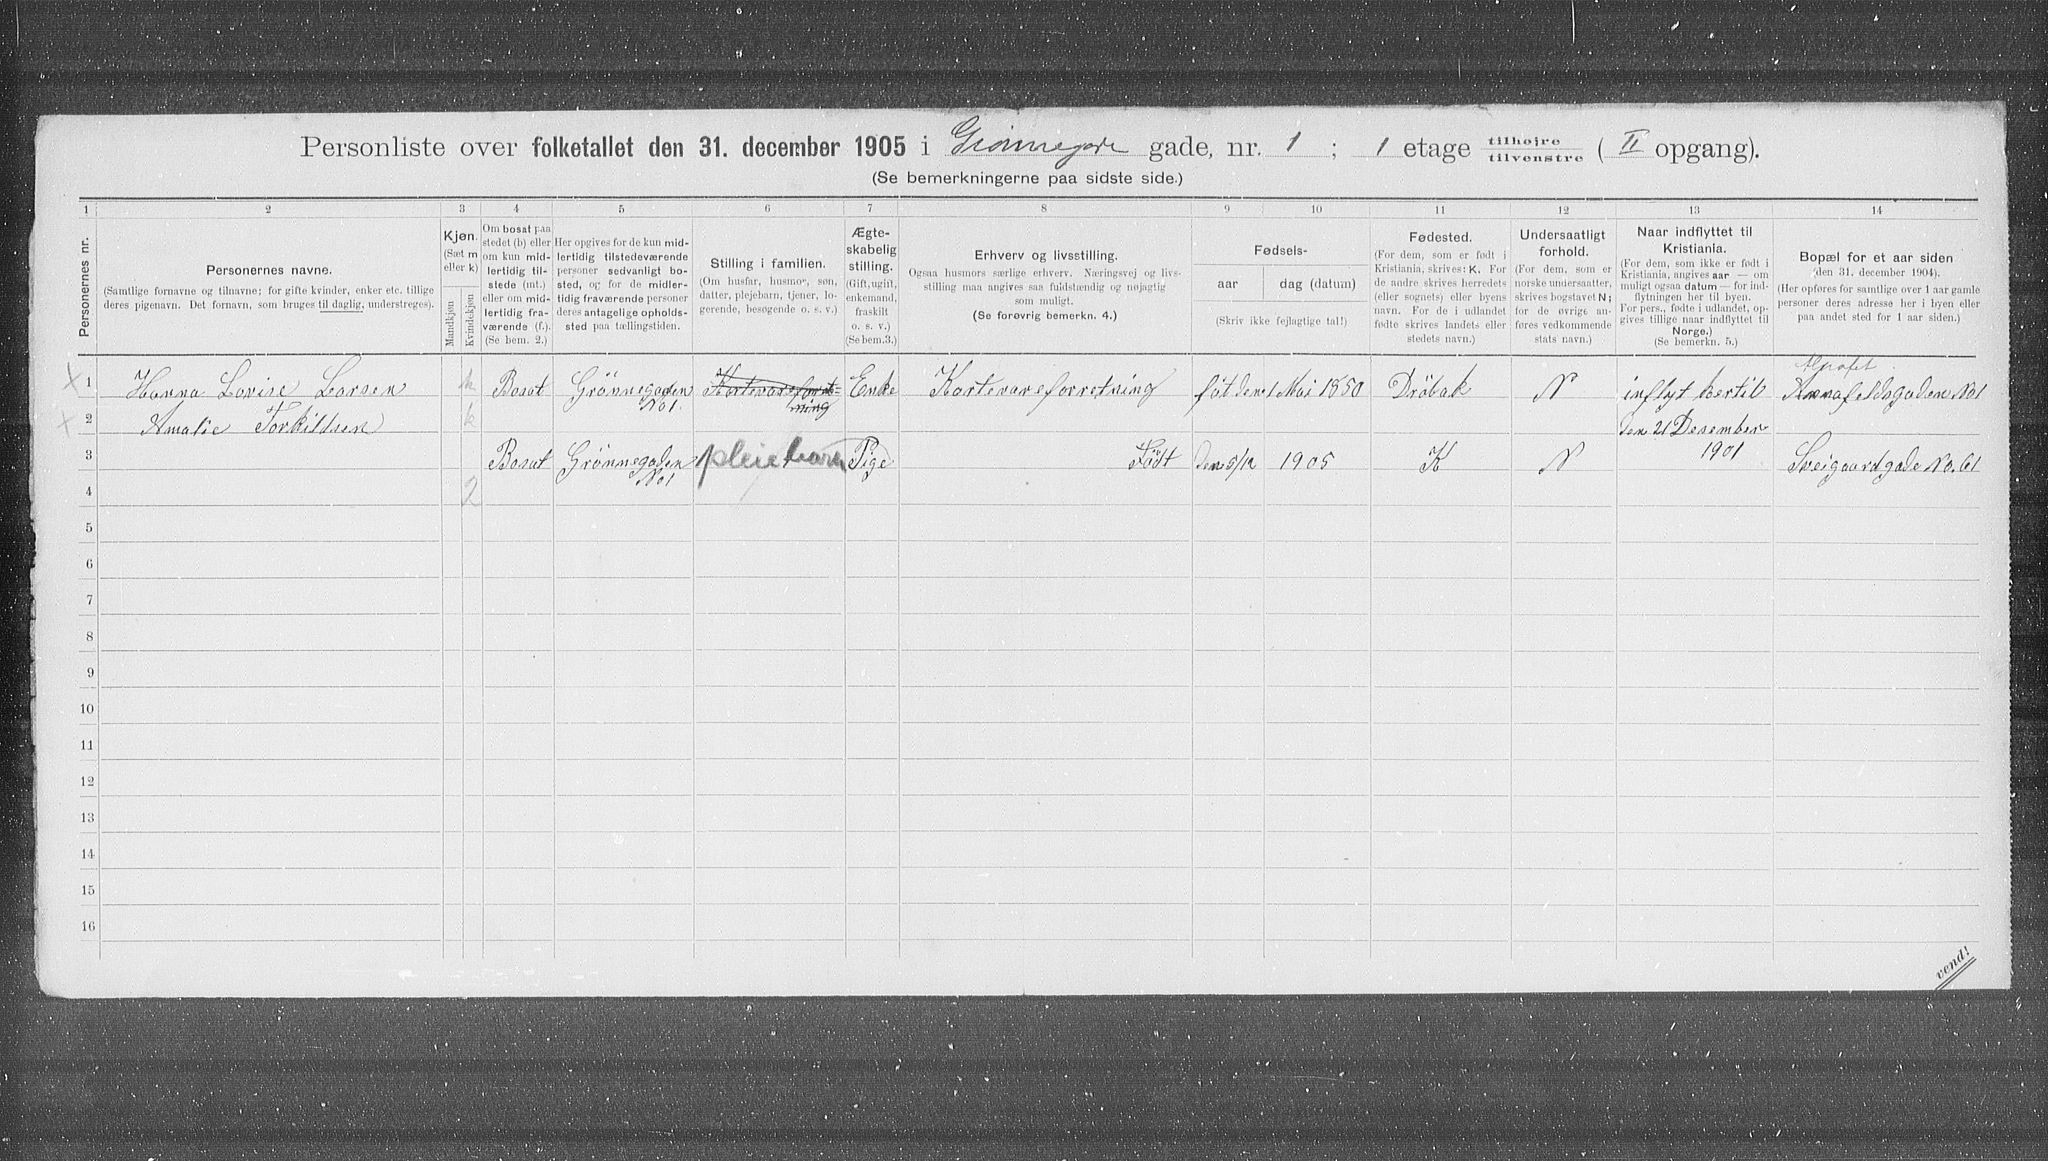 Personliste over folketallet den 31. december 1905 i Grønnegade gade, nr. 1 ; 1 etage tilhøjre tilvenstre ( II opgang).
(Se bemerkningerne paa sidste side.)
1 2 3 4 5 6 7 8 9 10 11 12 13 14
Personernes nr.
Personernes navne.
(Samtlige fornavne og tilnavne; for gifte kvinder, enker etc. tillige
deres pigenavn. Det fornavn, som bruges til daglig, understreges).
Kjøn.
(Sæt m
eller k)
Mandkjøn
Kvindekjøn
Om bosat paa
stedet (b) eller
om kun mid-
lertidig til-
stede (mt.)
eller om mid-
lertidig fra-
værende (f.).
(Se bem. 2.)
Her opgives for de kun mid-
lertidig tilstedeværende
personer sedvanlig bo-
sted, og for de midler-
tidig fraværende personer
deres antagelige opholds-
sted paa tællingstiden.
Stilling i familien.
(Om husfar, husmor, søn,
datter, plejebarn, tjener, lo-
gerende, besøgende o. s. v.)
Ægte-
skabelig
stilling.
(Gift, ugift,
enkemand,
fraskilt
o. s. v.)
(Se bem.3.)
Erhverv og livsstilling.
Ogsaa husmors særlige erhverv. Næringsvej og livs-
stilling maa angives saa fuldstændig og nøjagtig
som muligt.
(Se forøvrig bemerkn. 4.)
Fødsels-
aar
dag (datum)
(Skriv ikke fejlagtige tal!)
Fødested.
(For dem, som er født i
Kristiania, skrives: K. For
de andre skrives herredets
(eller sognets) eller byens
navn. For de i udlandet
fødte skrives landets eller
stedets navn.)
Undersaatligt
forhold.
(For dem, som er
norske undersaatter,
skrives bogstavet N;
for de øvrige an-
føres vedkommende
stats navn.)
Naar indflyttet til
Kristiania.
(For dem, som ikke er født i
Kristiania, angives aar — om
muligt ogsaa datum — for ind-
flytningen her til byen.
For pers., fødte i udlandet, op-
gives tillige naar indflyttet til
Norge.)
(Se bemerkn. 5.)
Bopæl for et aar siden
(den 31. december 1904).
(Her opføres for samtlige over 1 aar gamle
personer deres adresse her i byen eller
paa andet sted for 1 aar siden.)
x 1 Hanna Lovise Larsen k Bosat Grønnegaden No 1. Kortevareforret-ning Enke Kortevareforretning føt den 1 Mai 1850 Drøbak N inflyt hertil den 21 Desember 1901
x 2 Amalie Torkildsen k
3 Bosat Grønnegaden No 1 pleiebarn Pige Født den 5/12 1905 K N Sveigaardgade No. 61
4 2
5
6
7
8
9
10
11
12
13
14
15
16
vend!